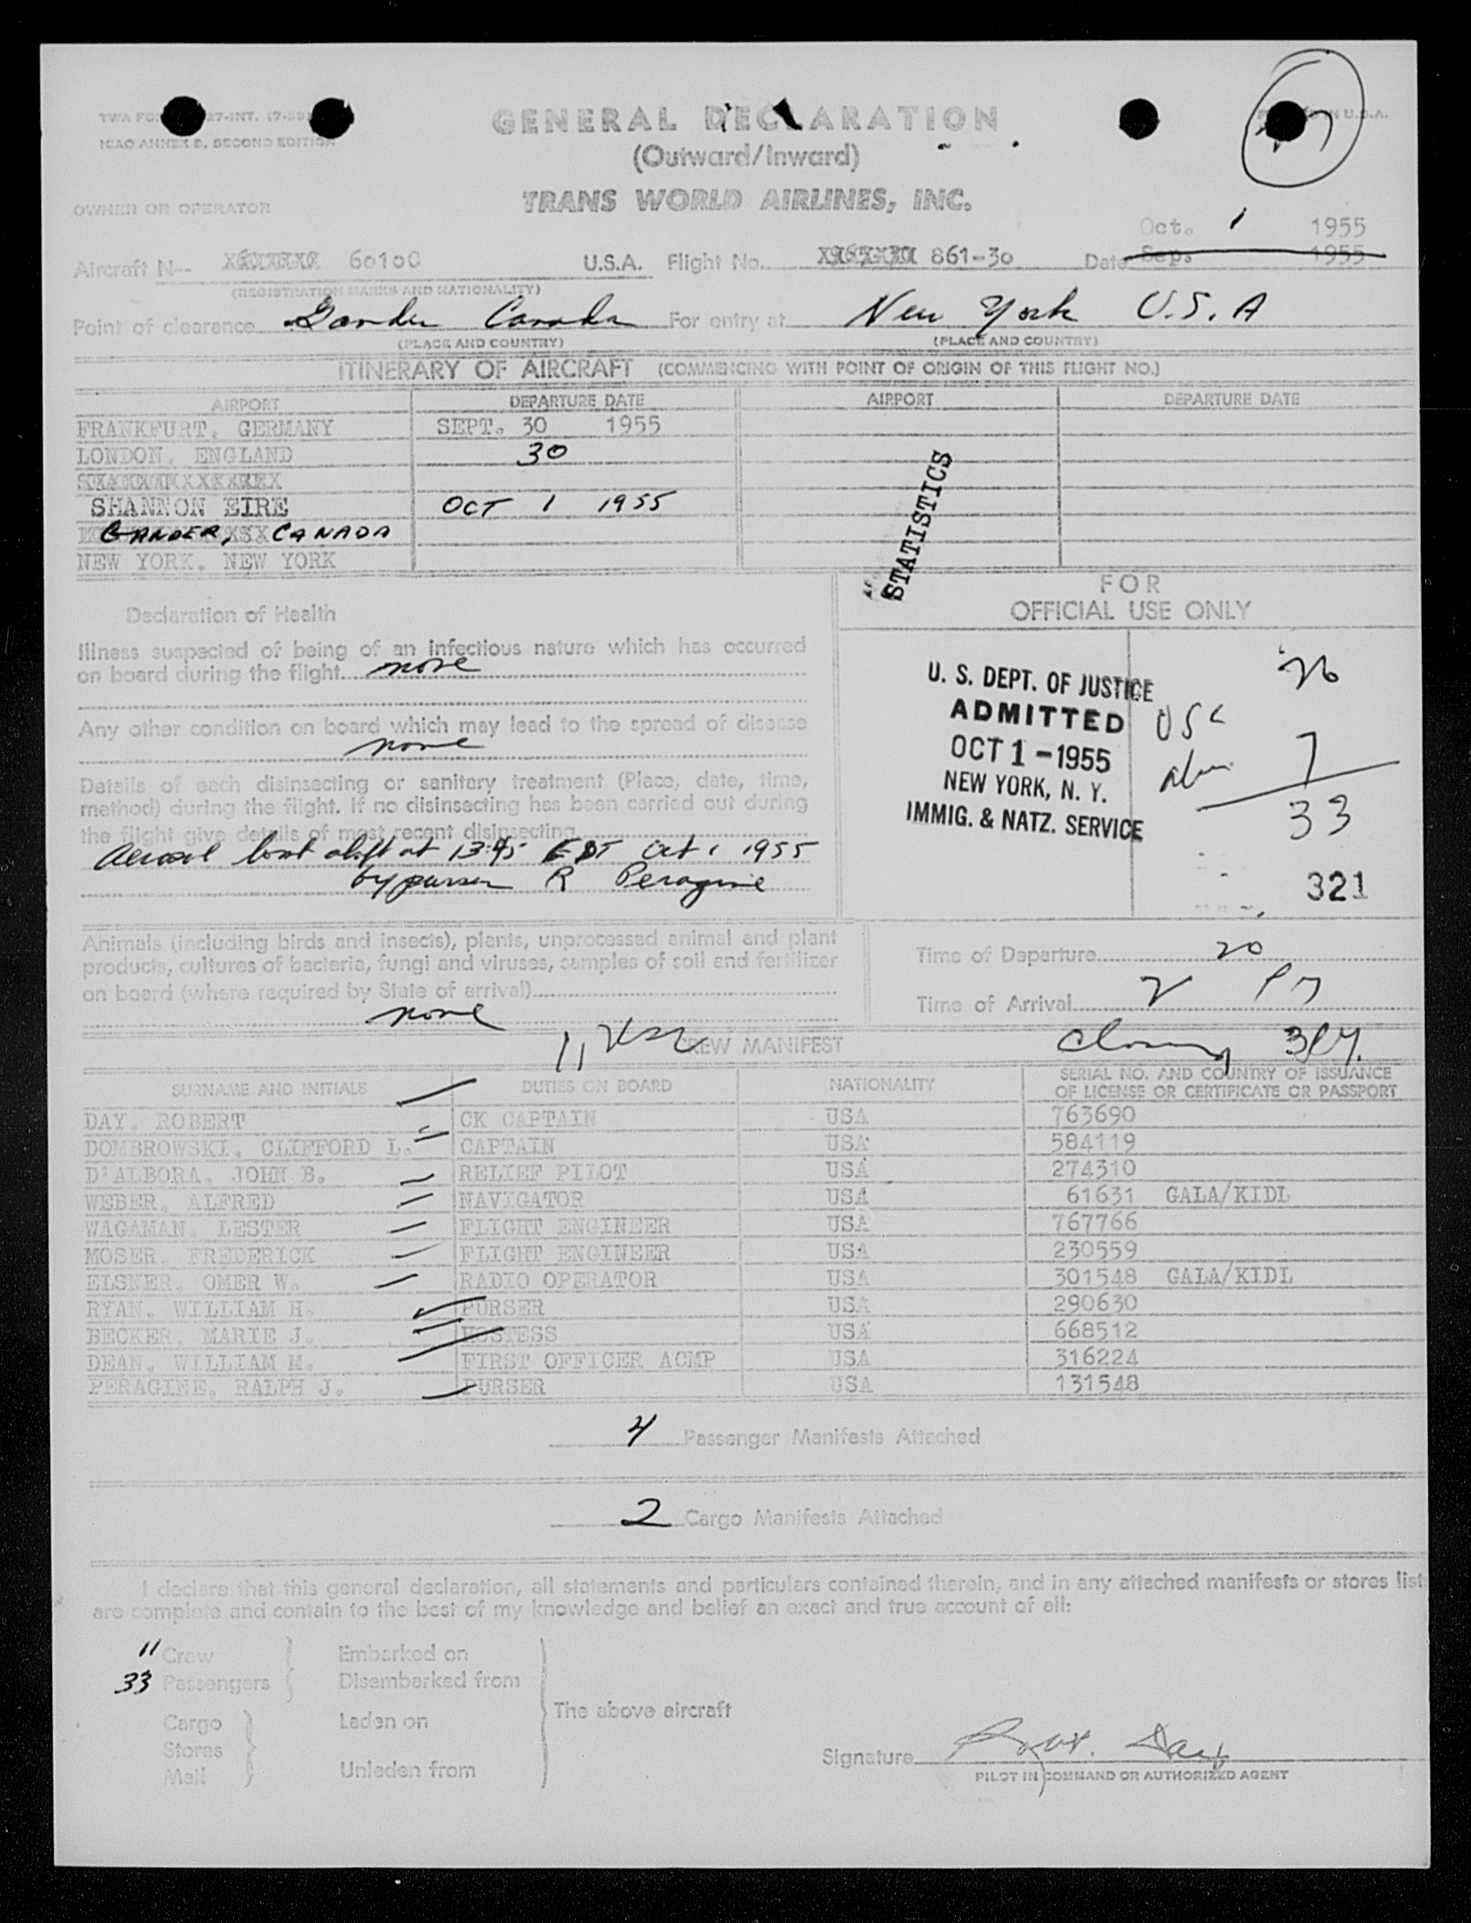 GENERAL DECLARATION
(Outward/Inward)
TRANS WORLD AIRLINES, INC.
ICAO ANNEX 9, SECOND EDITION
OWNER OR OPERATOR
Oct. 1 1955
Aircraft N-- 60100 U.S.A. Flight No. 861-30 Date Sep. 1955
(REGISTRATION MARKS AND NATIONALITY)
Point of clearance Gander Canada For entry at New York U.S.A
(PLACE AND COUNTRY) (PLACE AND COUNTRY)
ITINERARY OF AIRCRAFT (COMMENCING WITH POINT OF ORIGIN OF THIS FLIGHT NO.)
AIRPORT DEPARTURE DATE AIRPORT DEPARTURE DATE
FRANKFURT, GERMANY SEPT. 30 1955
LONDON, ENGLAND 30
SHANNON EIRE OCT 1 1955
GANDER, CANADA
NEW YORK, NEW YORK
STATISTICS
FOR
OFFICIAL USE ONLY
Declaration of Health
Illness suspected of being of an infectious nature which has occurred
on board during the flight none
Any other condition on board which may lead to the spread of disease
none
Details of each disinsecting or sanitary treatment (Place, date, time,
method) during the flight. If no disinsecting has been carried out during
the flight give details of most recent disinsecting
Aerosol bomb aloft at 13:45 EDT Oct 1 1955
by purser R Peragine
U. S. DEPT. OF JUSTICE
ADMITTED
OCT 1 - 1955
NEW YORK, N. Y.
IMMIG. & NATZ. SERVICE
26
USC
alien 7
33
321
Animals (including birds and insects), plants, unprocessed animal and plant
products, cultures of bacteria, fungi and viruses, samples of soil and fertilizer
on board (where required by State of arrival)
none
Time of Departure 20
Time of Arrival 2 PM
11 CREW MANIFEST
SURNAME AND INITIALS DUTIES ON BOARD NATIONALITY SERIAL NO. AND COUNTRY OF ISSUANCE
OF LICENSE OR CERTIFICATE OR PASSPORT
DAY, ROBERT CK CAPTAIN USA 763690
DOMBROWSKI, CLIFFORD L. CAPTAIN USA 584119
D'ALBORA, JOHN B. RELIEF PILOT USA 274310
WEBER, ALFRED NAVIGATOR USA 61631 GALA/KIDL
WAGAMAN, LESTER FLIGHT ENGINEER USA 767766
MOSER, FREDERICK FLIGHT ENGINEER USA 230559
ELSNER, OMER W. RADIO OPERATOR USA 301548 GALA/KIDL
RYAN, WILLIAM H. PURSER USA 290630
BECKER, MARIE J. HOSTESS USA 668512
DEAN, WILLIAM M. FIRST OFFICER ACMP USA 316224
PERAGINE, RALPH J. PURSER USA 131548
4 Passenger Manifests Attached
2 Cargo Manifests Attached
I declare that this general declaration, all statements and particulars contained therein, and in any attached manifests or stores list
are complete and contain to the best of my knowledge and belief an exact and true account of all:
11 Crew Embarked on
33 Passengers Disembarked from
The above aircraft
Cargo Laden on
Stores
Mail Unladen from
Signature Robt. Day
PILOT IN COMMAND OR AUTHORIZED AGENT